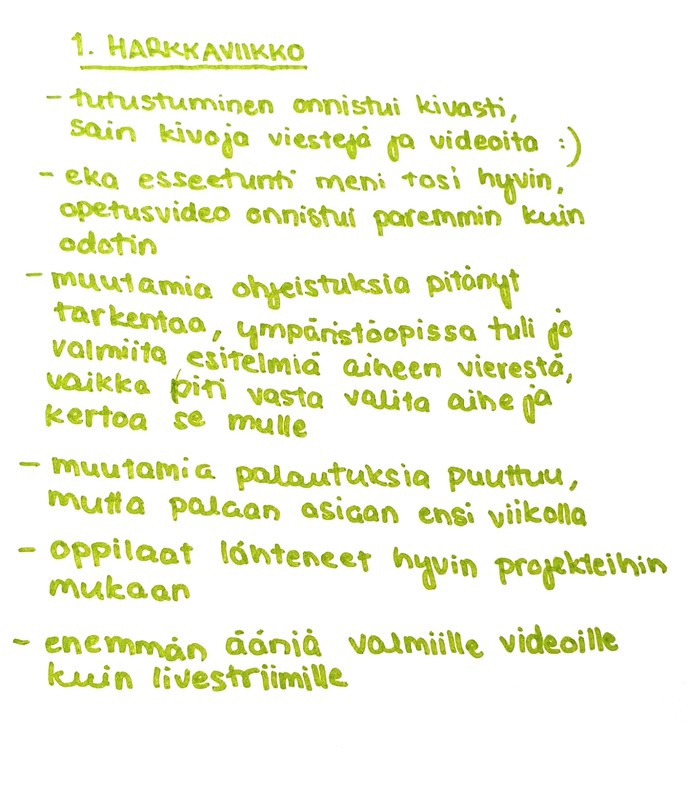 1. HARKKAVIIKKO
- tutustuminen onnistui kivasti,
sain kivoja viestejä ja videoita :)
- eka esseetunti meni tosi hyvin,
opetusvideo onnistui paremmin kuin
odotin
- muutamia ohjeistuksia pitänyt
tarkentaa, ympäristöopissa tuli jo
valmiita esitelmiä aiheen vierestä,
vaikka piti vasta valita aihe ja
kertoa se mulle
- muutamia palautuksia puuttuu,
mutta palaan asiaan ensi viikolla
- oppilaat lähteneet hyvin projekteihin
mukaan
- enemmän ääniä valmiille videoille
kuin livestriimille